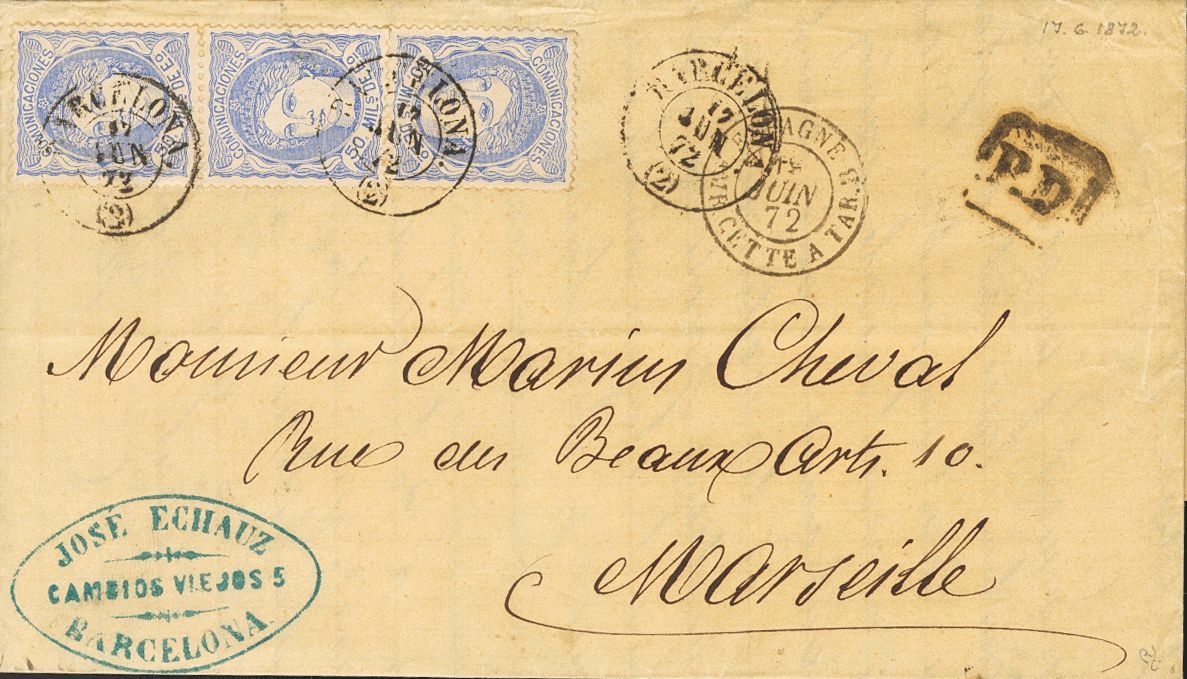 17. 6. 1872.
COMUNICACIONES
COMUNICACIONES
COMUNICACIONES
50 MILS DE E.
BARCELONA
17 JUN 72
(2)
BARCELONA
17
JUN
72
(2)
BARCELONA
17
JUN
72
(2)
ESPAGNE
JUIN
72
CETTE A TAR
P.D
Monsieur Marius Cheval
Rue des Beaux Arts. 10.
Marseille
JOSÉ ECHAUZ
CAMBIOS VIEJOS 5
BARCELONA